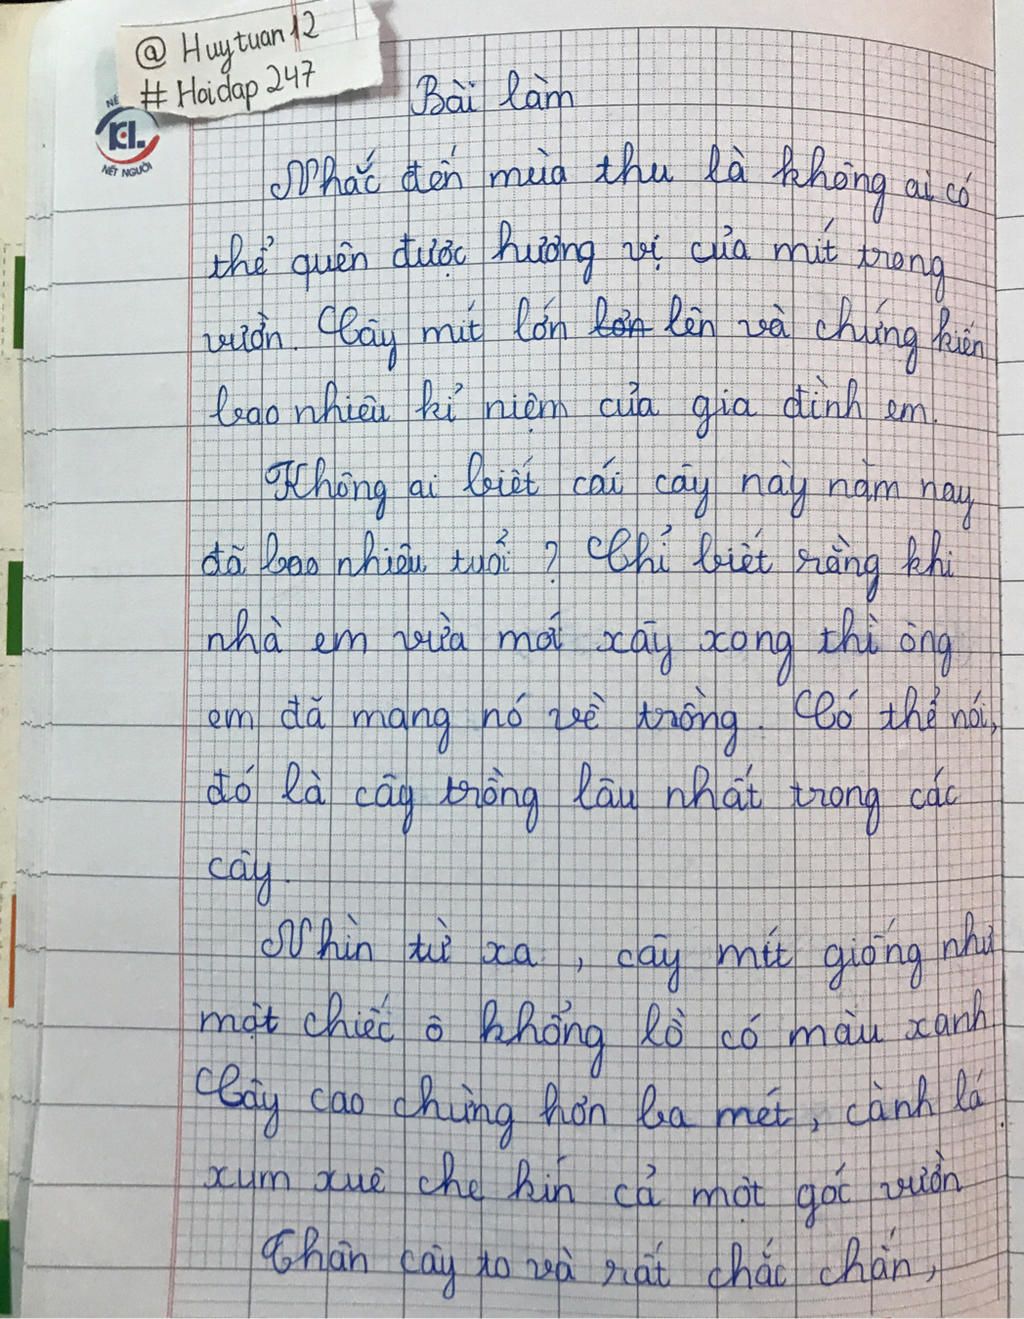 @ Huytuan12
# Hoidap 247
KL.
NÉT NGƯỜI
Bài làm
Nhắc đến mùa thu là không ai có
thể quên được hương vị của mít trong
vườn. Cây mít lớn lớn lên và chứng kiến
bao nhiêu kỉ niệm của gia đình em.
Không ai biết cái cây này năm nay
đã bao nhiêu tuổi ? Chỉ biết rằng khi
nhà em vừa mới xây xong thì ông
em đã mang nó về trồng. Có thể nói,
đó là cây trồng lâu nhất trong các
cây.
Nhìn từ xa, cây mít giống như
một chiếc ô khổng lồ có màu xanh
Cây cao chừng hơn ba mét, cành lá
xum xuê che kín cả một góc vườn
Thân cây to và rất chắc chắn,